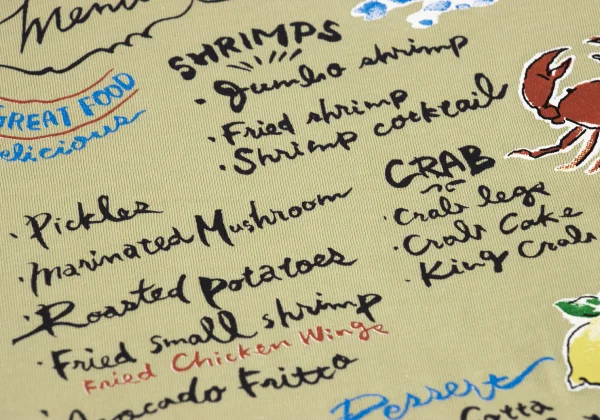 Menu
GREAT FOOD
delicious
SHRIMPS
· Jumbo shrimp
· Fried shrimp
· Shrimp cocktail
CRAB
· Crab legs
· Crab Cake
· King Crab
· Pickles
· Marinated Mushroom
· Roasted Potatoes
· Fried small shrimp
Fried Chicken Wings
· Avocado Fritto
Dessert